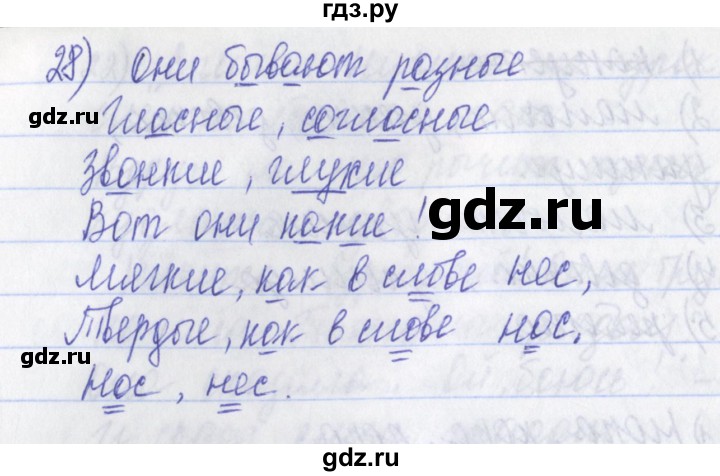 гдз.ру
28) Они бывают разные
gdz.ru gdz.ru
Гласные, согласные
Звонкие, глухие
gdz.ru
Вот они какие!
Мягкие, как в слове нес,
gdz.ru gdz.ru
Твердые, как в слове нос.
gdz.ru gdz.ru
Нос, нес.